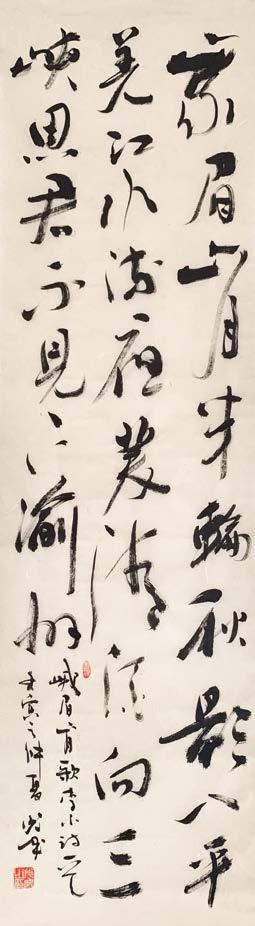 峩眉山月半輪秋影入平
羌江水流夜發清溪向三
峽思君不見下渝州
峨眉月歌李白詩
壬寅之仲夏